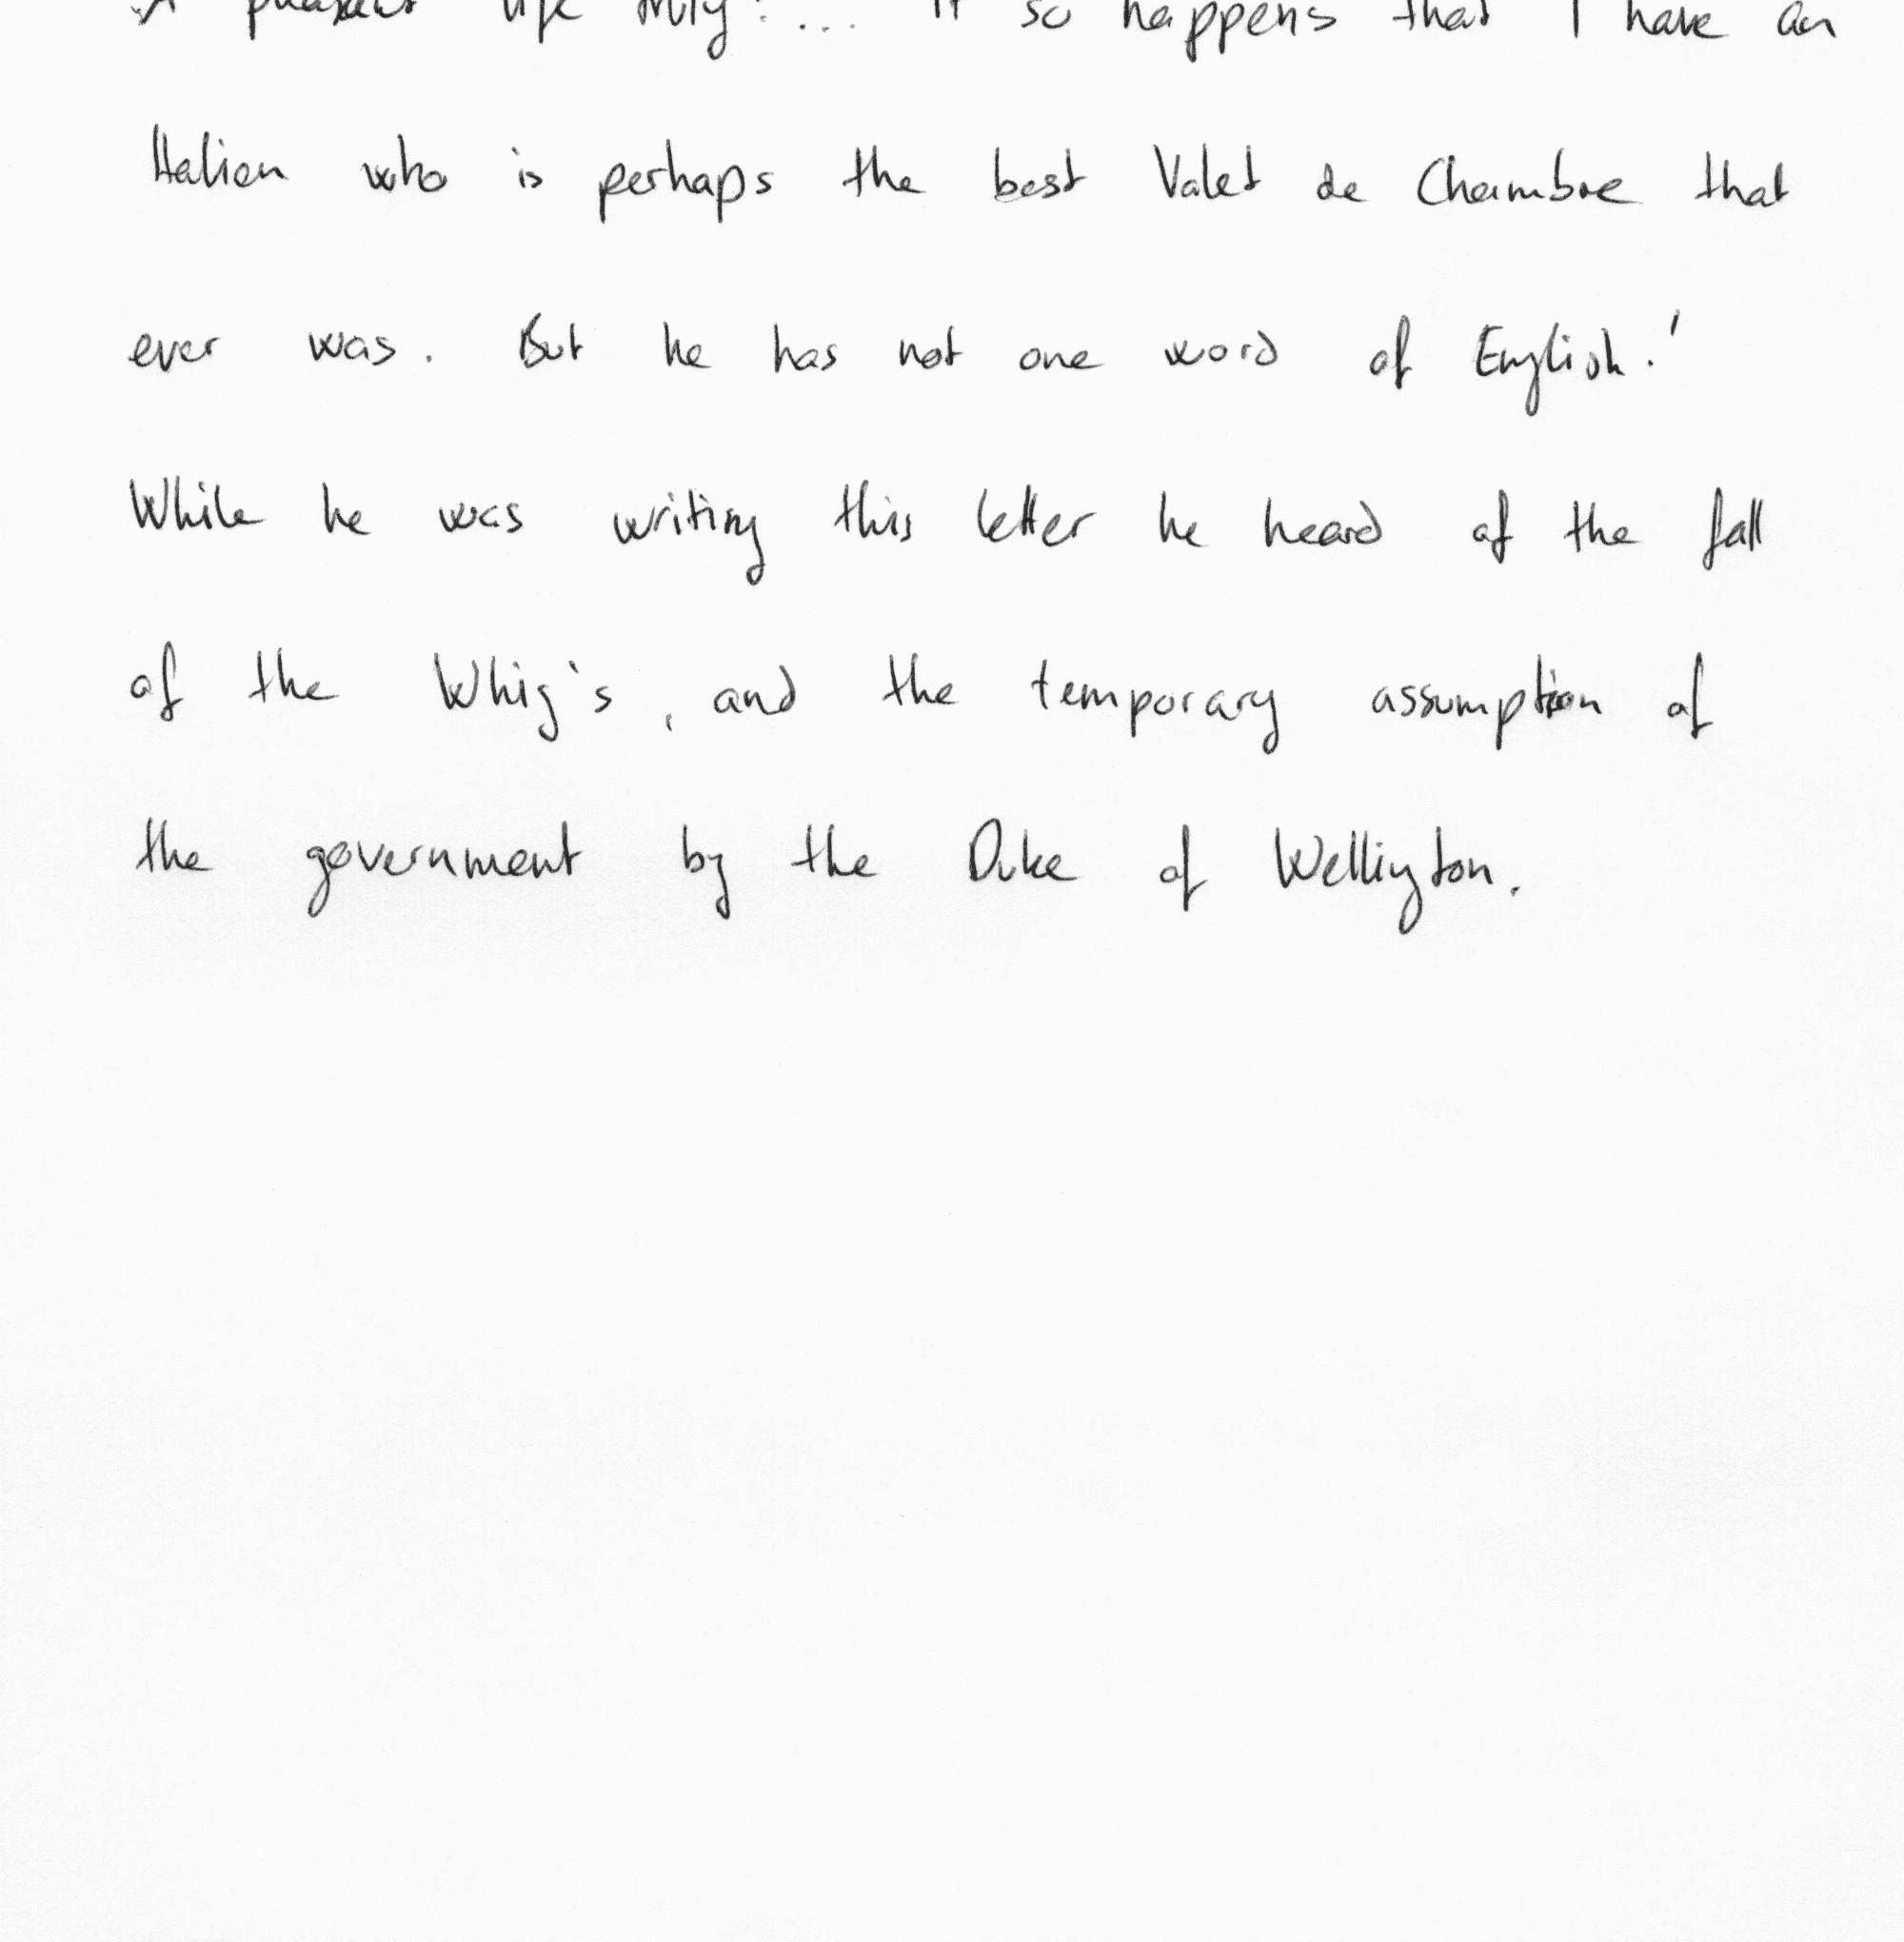 A pleasant life truly! ... It so happens that I have an
Italian who is perhaps the best Valet de Chambre that
ever was. But he has not one word of English.'
While he was writing this letter he heard of the fall
of the Whig's, and the temporary assumption of
the government by the Duke of Wellington.